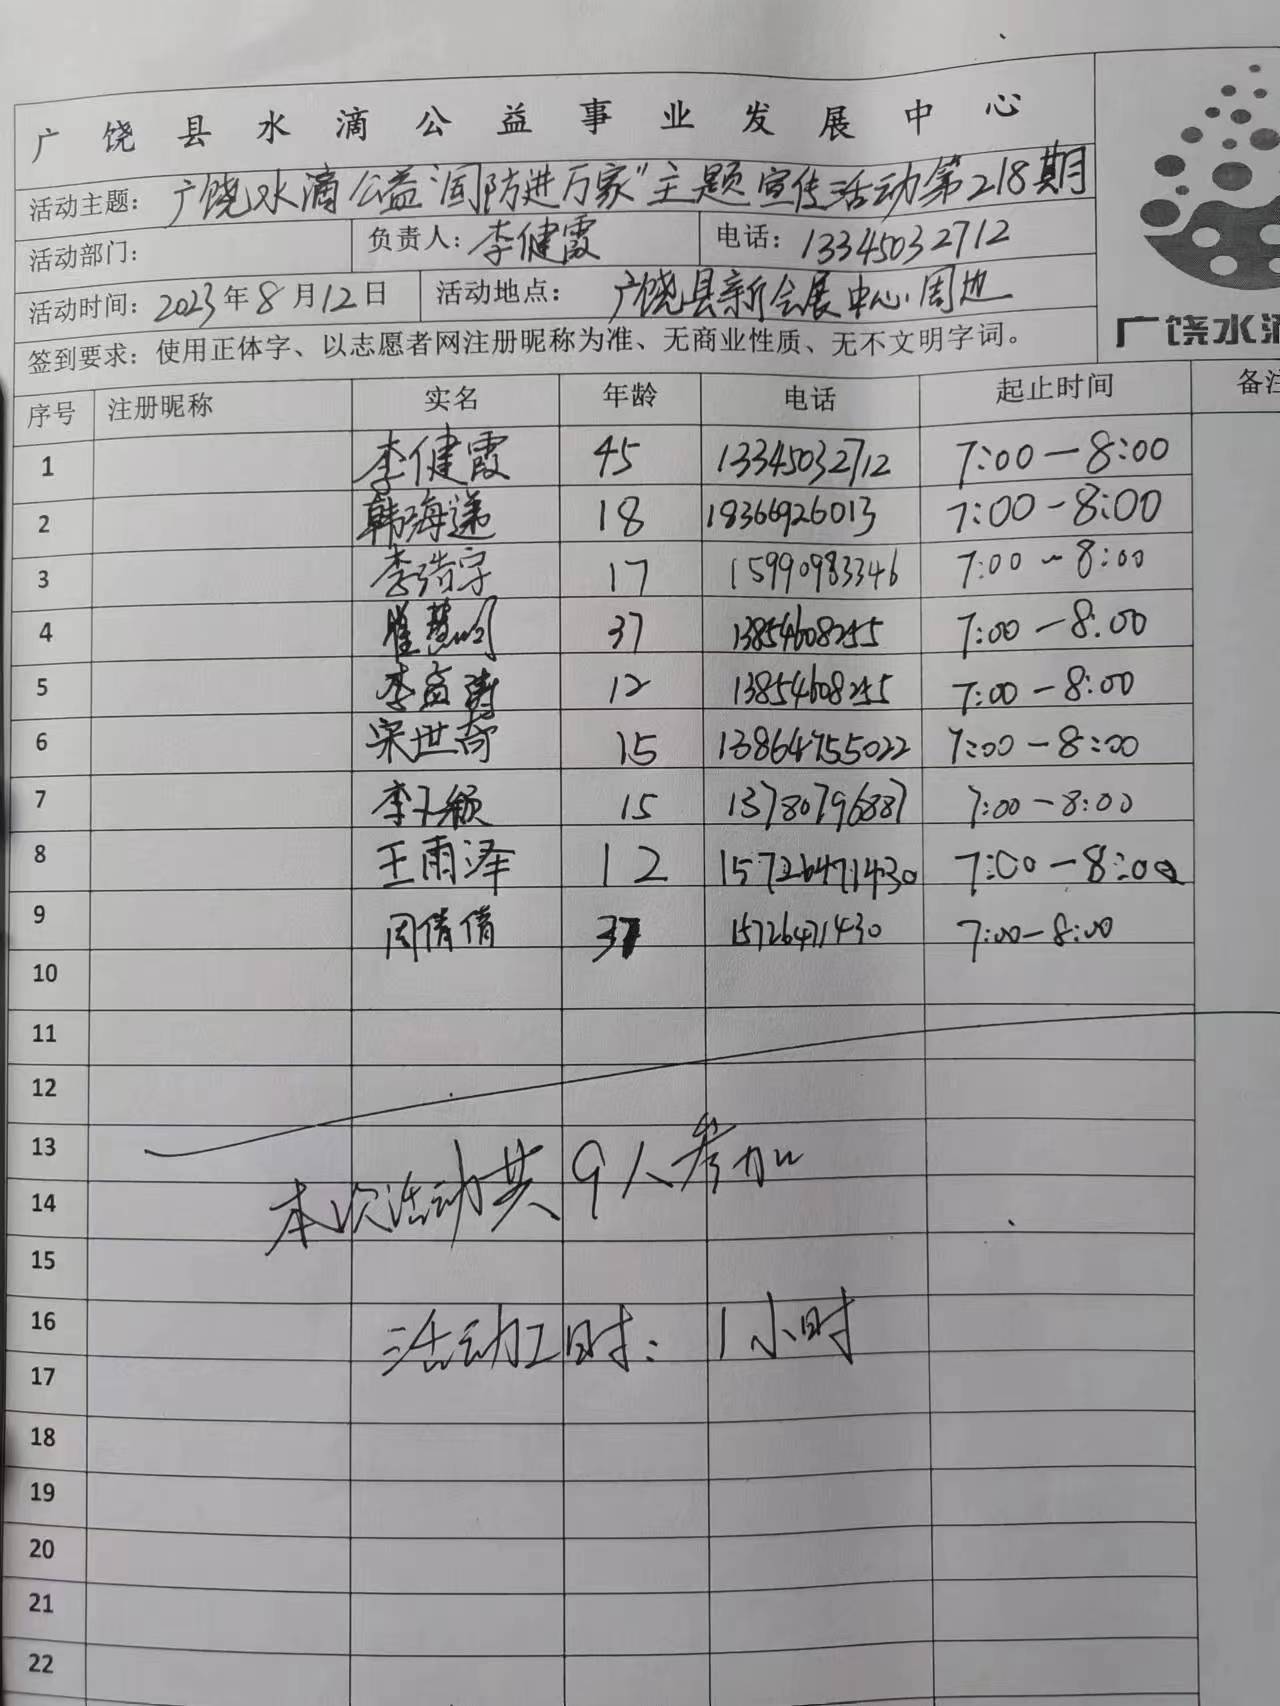 广饶县水滴公益事业发展中心
活动主题: 广饶水滴公益"国防进万家"主题宣传活动第218期
活动部门: 负责人: 李健霞 电话: 13345032712
活动时间: 2023年8月12日 活动地点: 广饶县新会展中心周边
签到要求: 使用正体字、以志愿者网注册昵称为准、无商业性质、无不文明字词。
广饶水滴
序号 注册昵称 实名 年龄 电话 起止时间 备注
1 李健霞 45 13345032712 7:00-8:00
2 韩海递 18 18366926013 7:00-8:00
3 李浩宇 17 15990983346 7:00-8:00
4 37 13854608255 7:00-8.00
5 李益涛 12 13854608255 7:00-8:00
6 宋世奇 15 13864755022 7:00-8:00
7 李子颖 15 13780796887 7:00-8:00
8 王雨泽 12 15726471430 7:00-8:00
9 周倩倩 37 15726471430 7:00-8:00
10
11
12
13
本次活动共9人参加
14
15
16
活动工时: 1小时
17
18
19
20
21
22